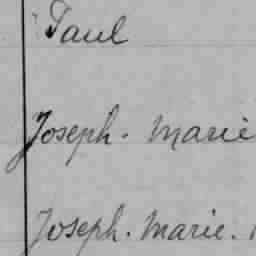 Paul
Joseph. Marie
Joseph. Marie.